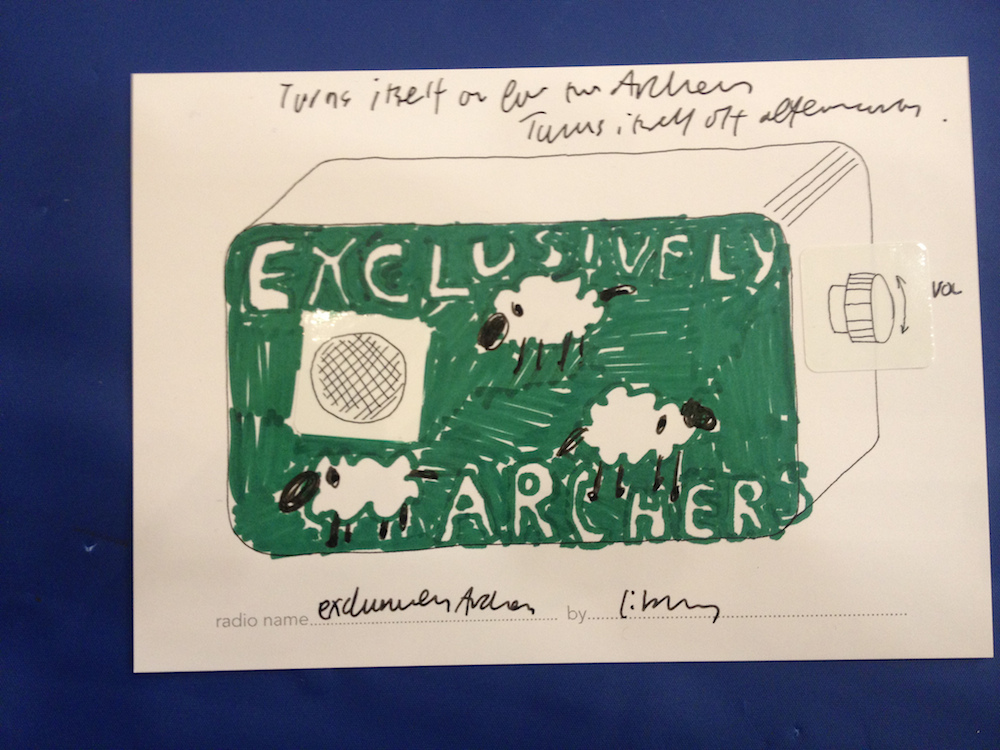 Turns itself on for the Archers
Turns itself off afterwards.
EXCLUSIVELY
VOL
ARCHERS
radio name exclusively Archers by